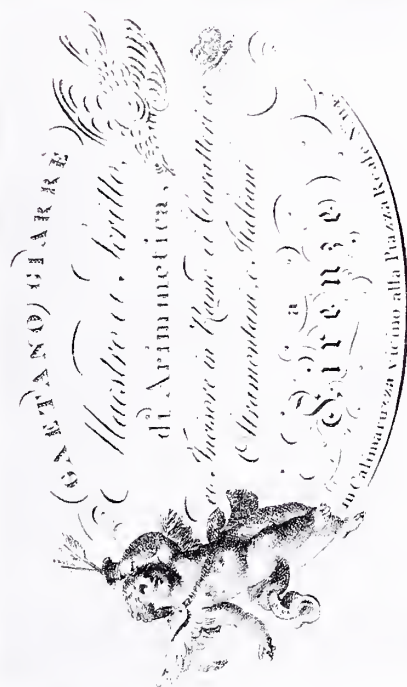 GAETANO GIARRÈ
Maestro di Scritto,
di Arimmetica,
ed Incisore in Rame di Caratteri
Oltramontani, e Italiani
a
Firenze
in Calimaruzza vicino alla Piazza Reale